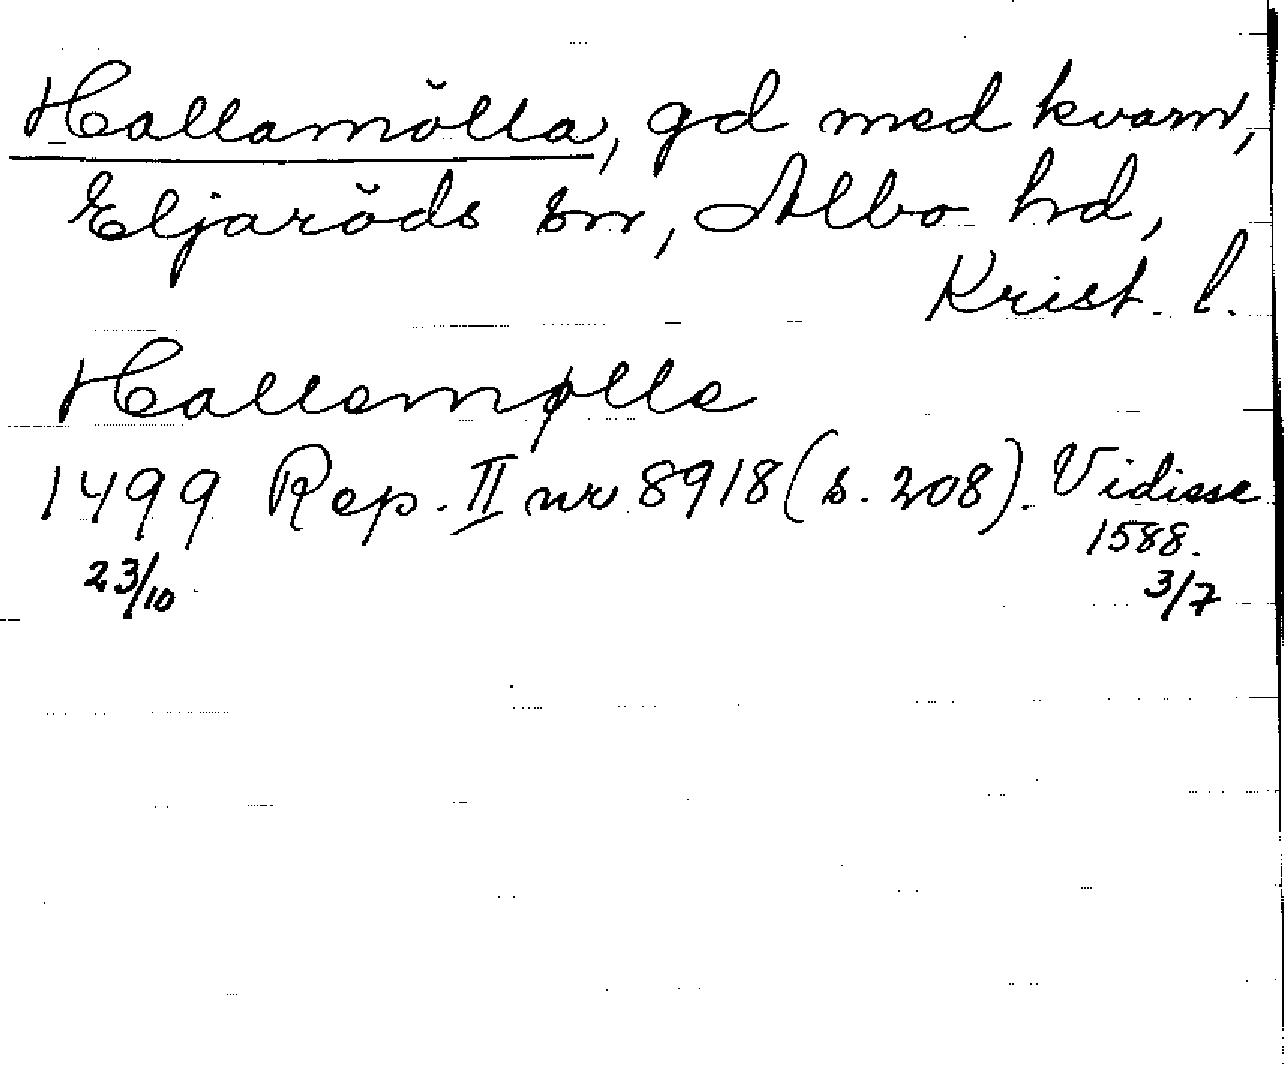 Hallamölla, gd med kvarn,
Eljaröds sn, Albo hd,
Krist. l.
Hallemølle
1499 Rep. II nr 8918 (s. 208). Vidisse
1588.
23/10
3/7